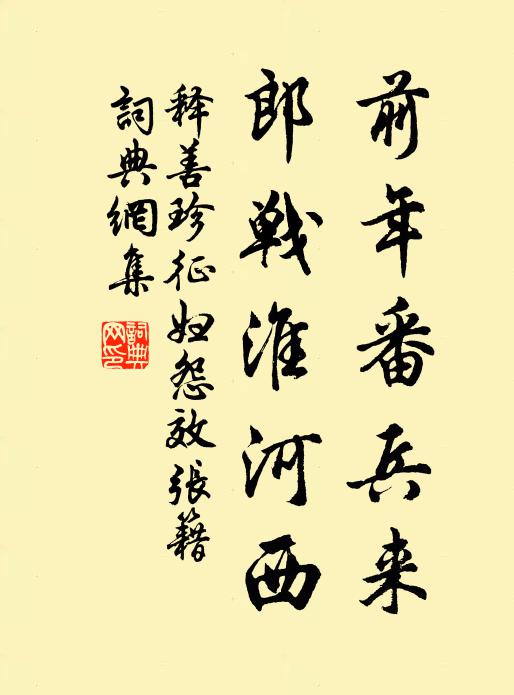 前年番兵来
郎戰淮河西
释善珍征妇怨效張籍
詞典網集
詞典網印